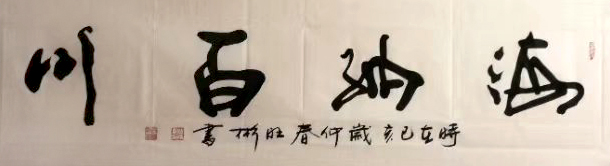 海纳百川
時在己亥歲仲春旺彬書